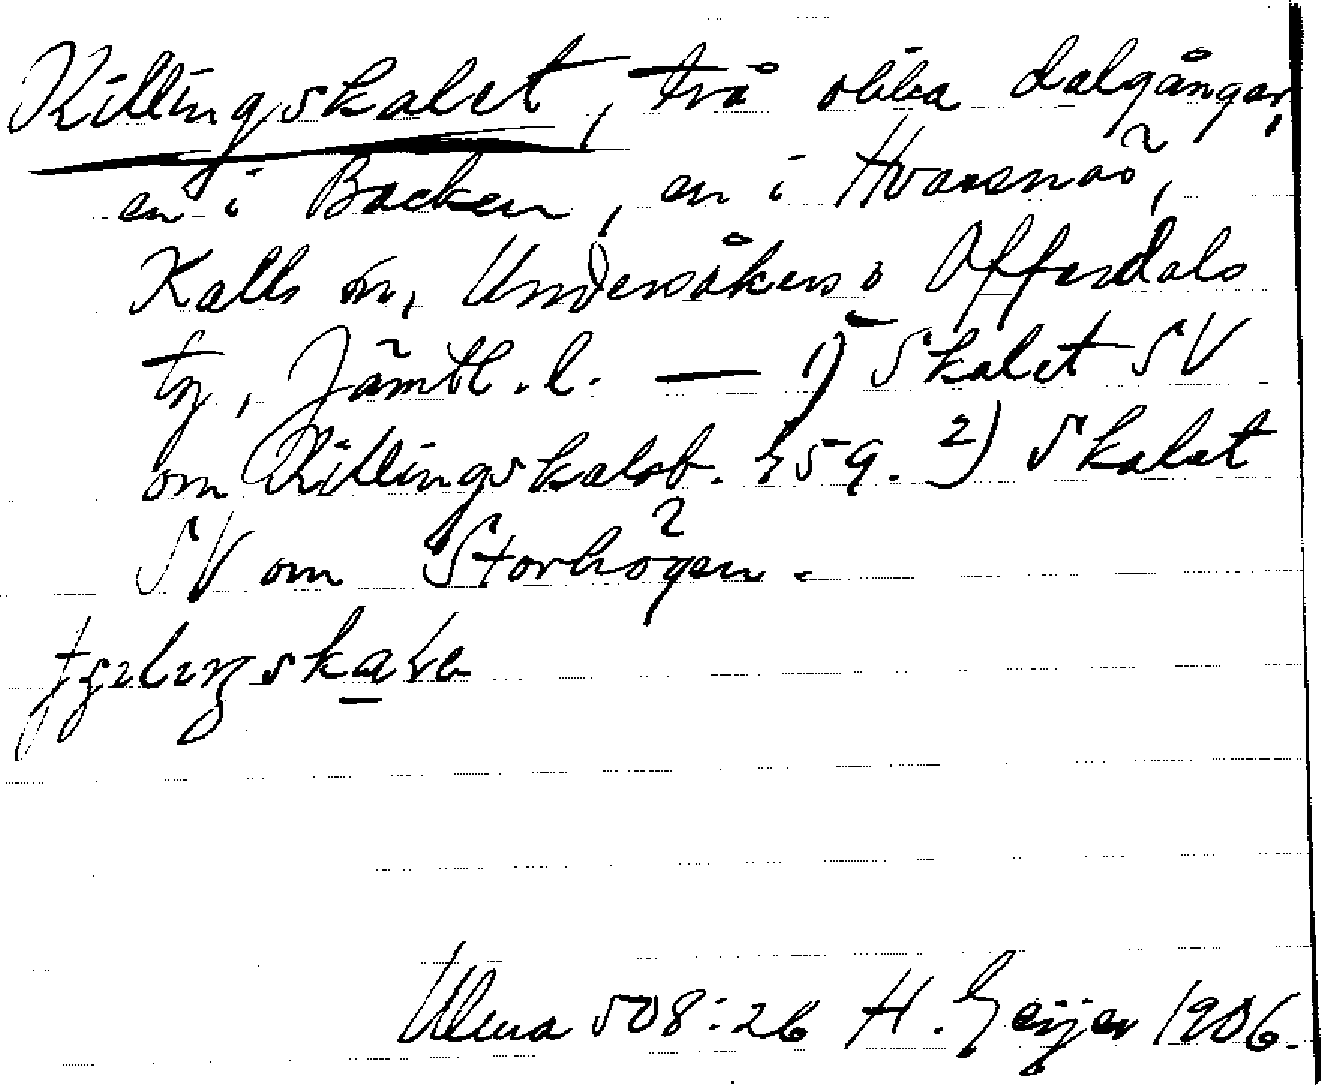 Killingskalet, två olika dalgångar,
en i Backen, en i Kvarnsnäs,
Kalls sn, Undersåkers o Offerdals
tg, Jämtl. l. — 1) Skalet SV
om Killingskalsb. 859. 2) Skalet
SV om Storhögen.
Ulma 508:26 H. Geijer 1906.